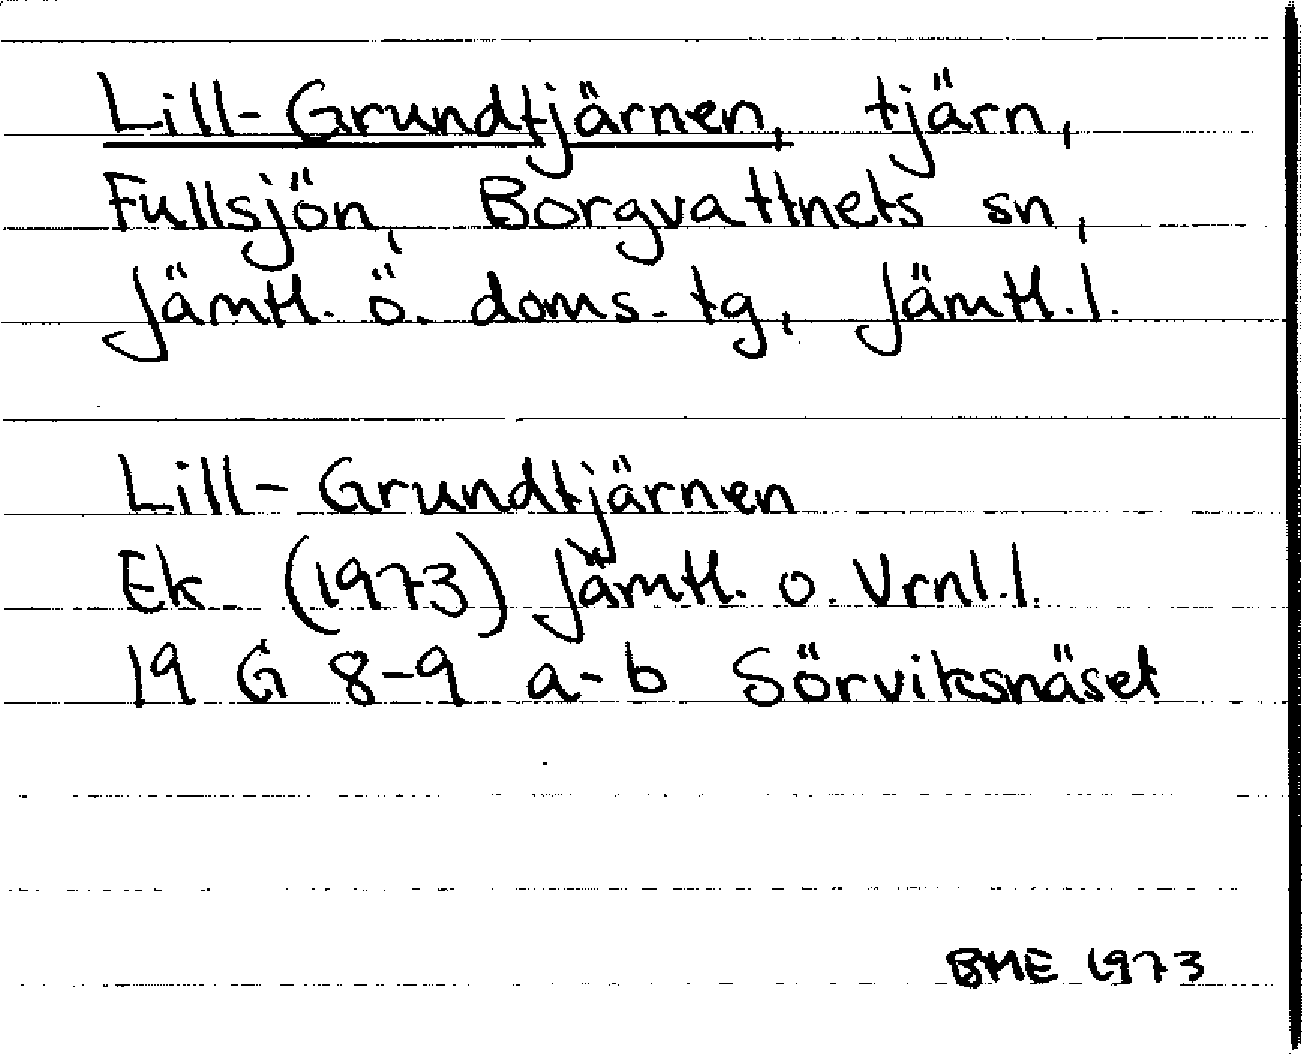 Lill-Grundtjärnen, tjärn,
Fullsjön, Borgvattnets sn,
Jämtl. ö. doms. tg, Jämtl. l.
Lill-Grundtjärnen
Ek (1973) Jämtl. o. Vrnl. l.
19 G 8-9 a-b Sörviksnäset
BME 1973